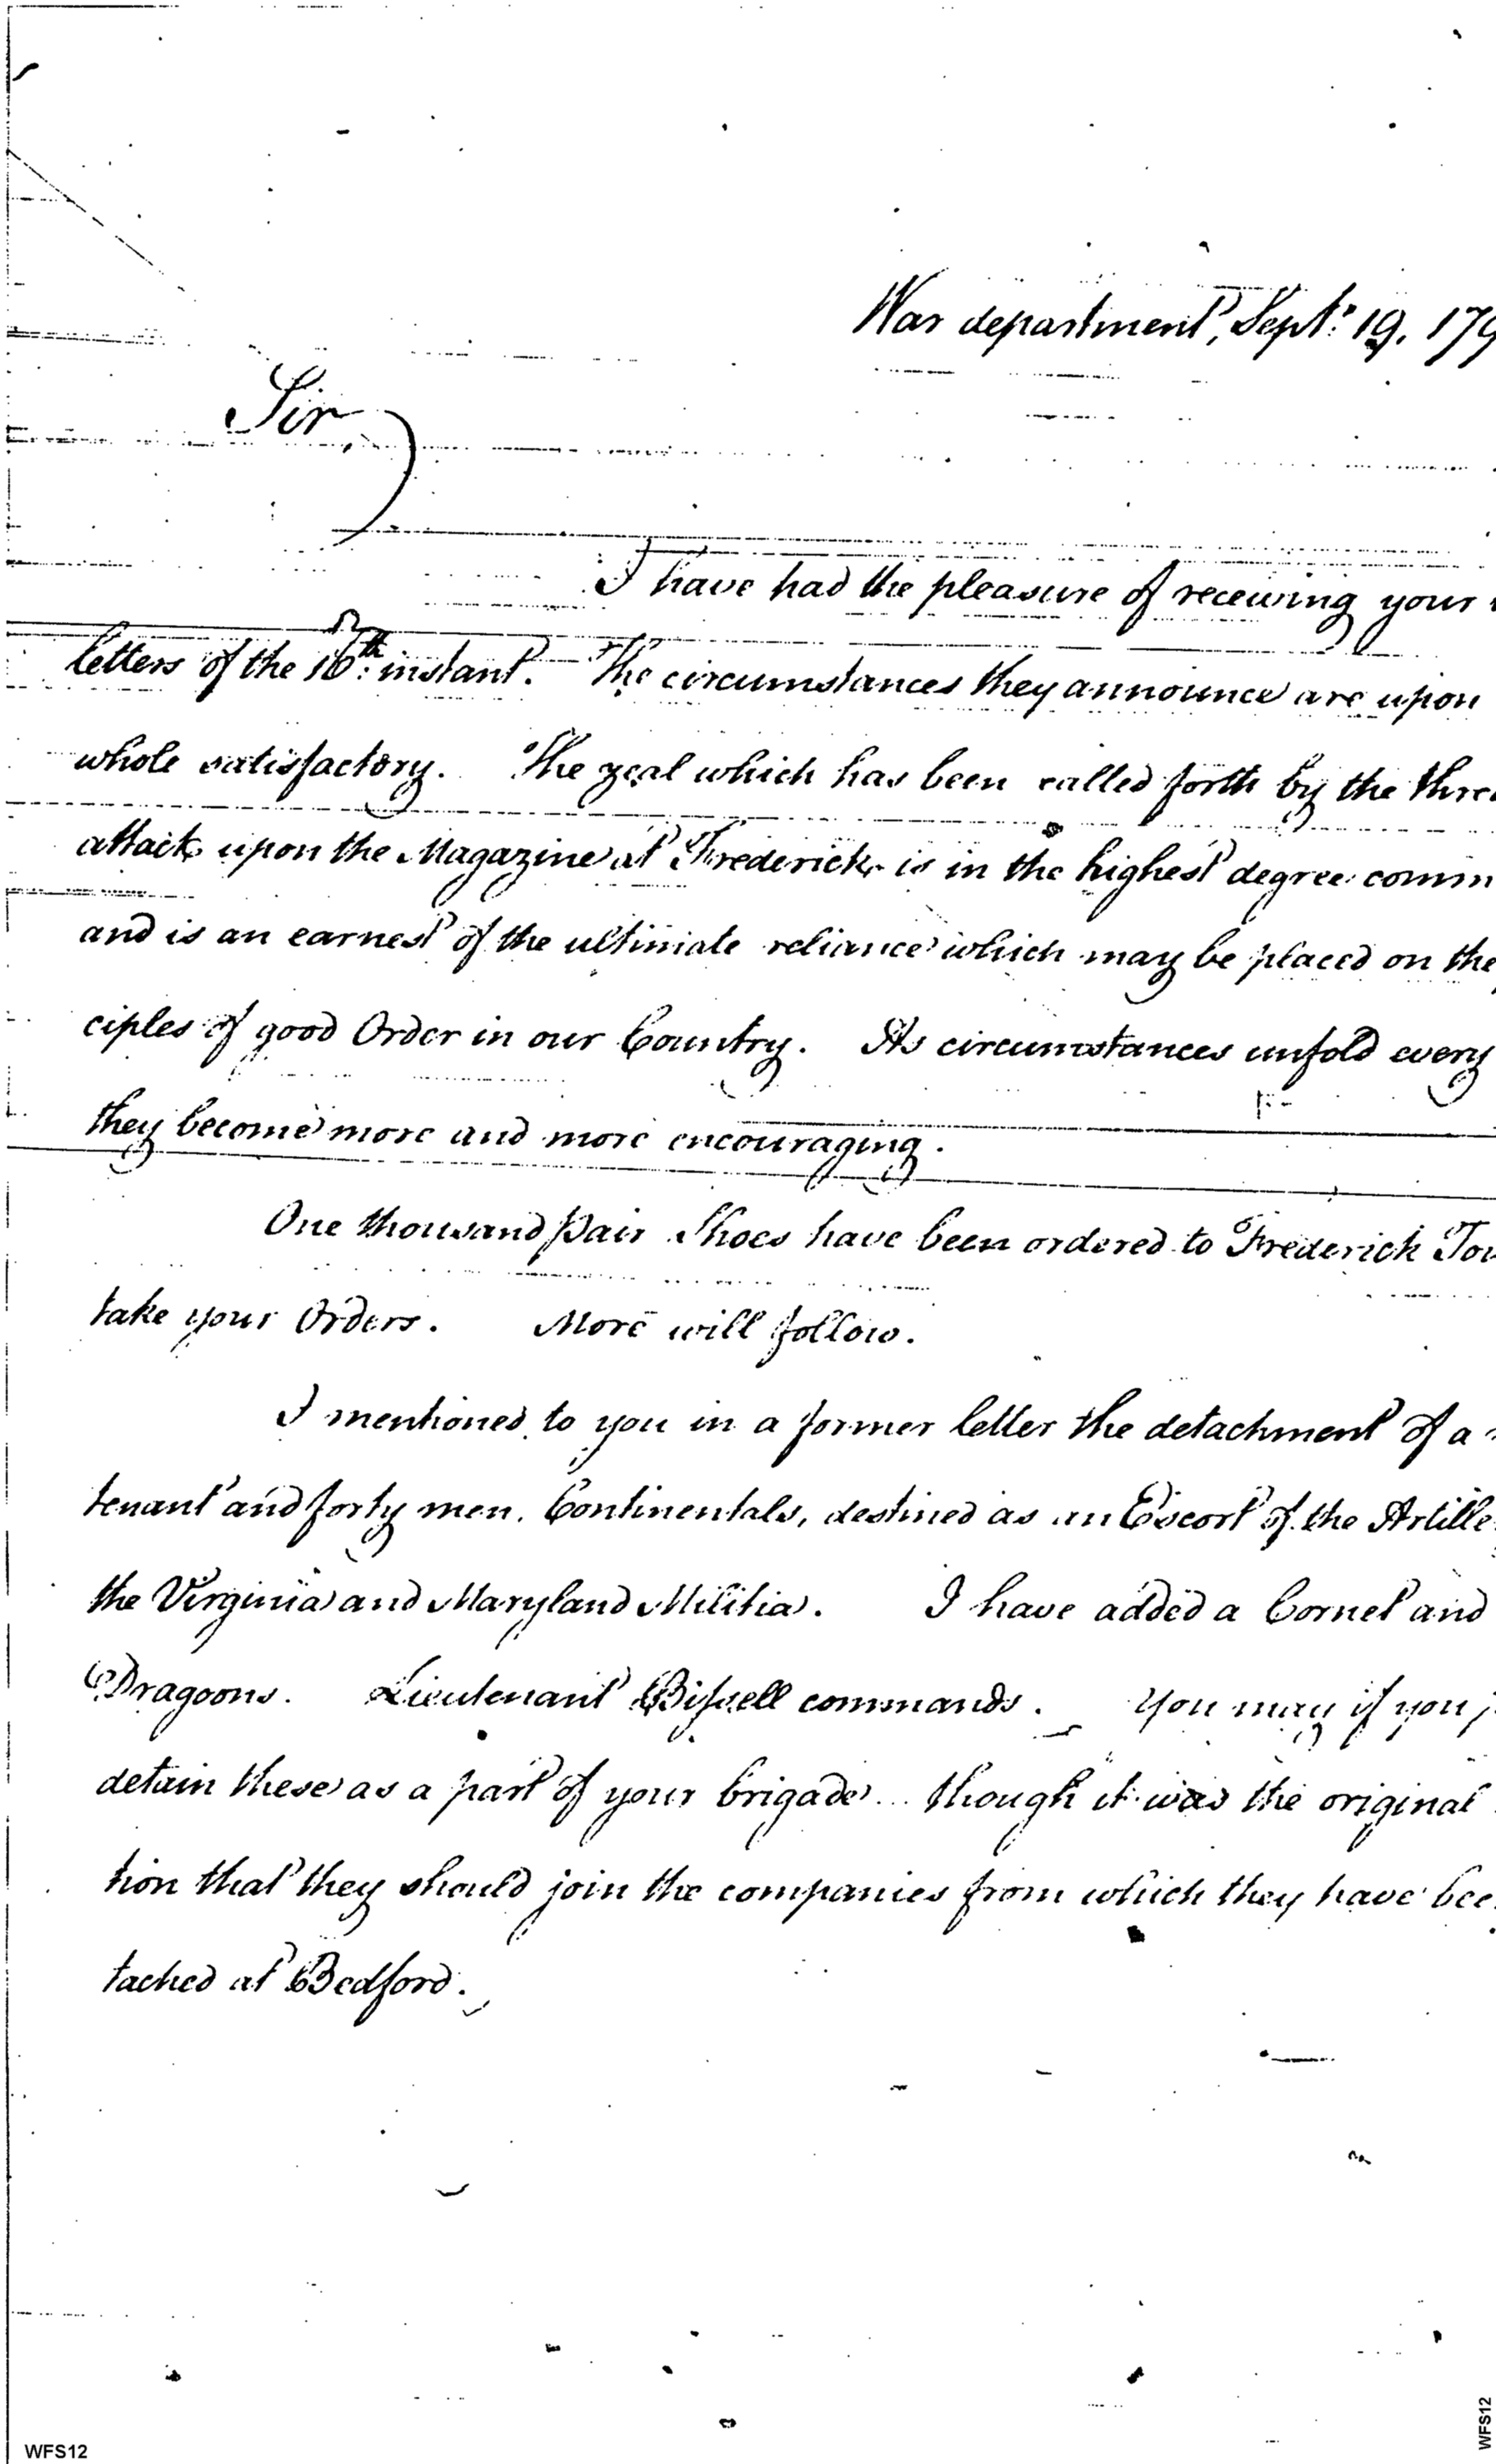 War department, Sept: 19. 179
Sir
I have had the pleasure of receiving your
letters of the 16th: instant. The circumstances they announce are upon
whole satisfactory. The zeal which has been called forth by the thre
attack upon the Magazine at Frederick is in the highest degree comm
and is an earnest of the ultimate reliance which may be placed on the
ciples of good Order in our Country. As circumstances unfold every
they become more and more encouraging.
One thousand pair Shoes have been ordered to Frederick Tow
take your Orders. More will follow.
I mentioned to you in a former letter the detachment of a
tenant and forty men, Continentals, destined as an Escort of the Artille
the Virginia and Maryland Militia. I have added a Cornet and
Dragoons. Lieutenant Bissell commands. You may if you p
detain these as a part of your brigade... though it was the original
tion that they should join the companies from which they have bee
tached at Bedford.
WFS12
WFS12